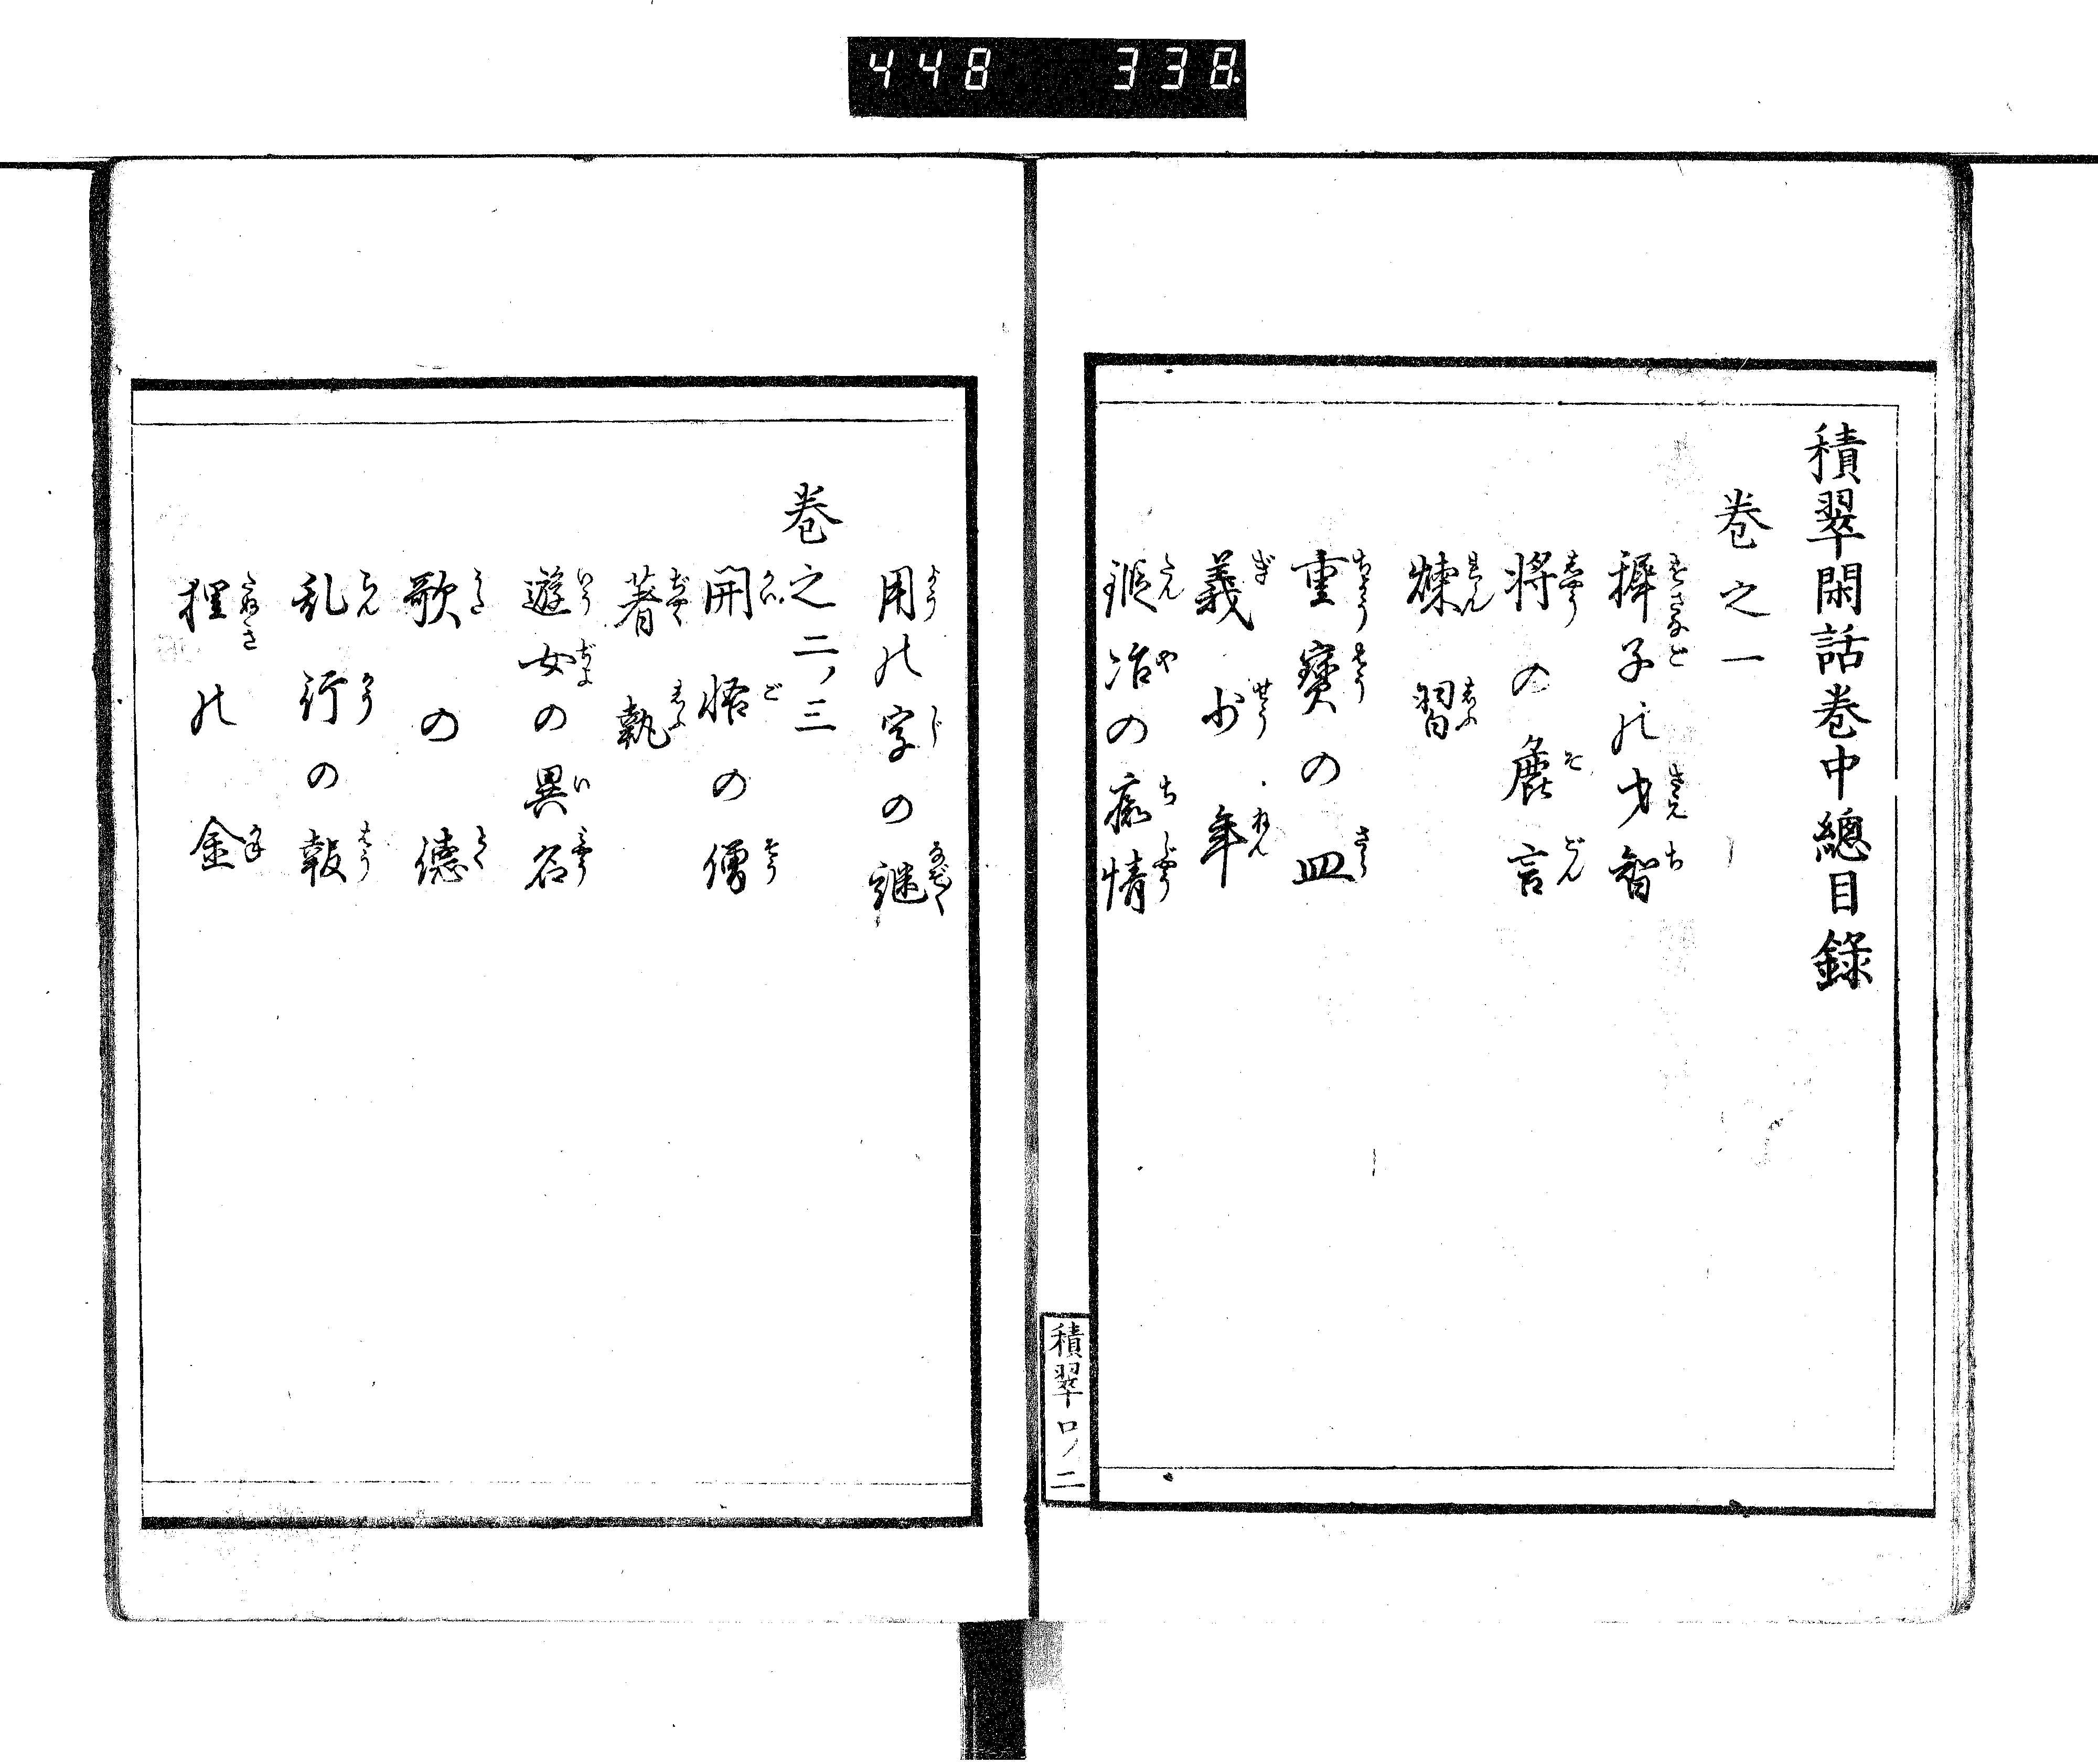 448 338
積翠閑話巻中總目錄
巻之一
穉子の才智
将の麁言
煉習
重寳の皿
義少年
鍛冶の痴情
積翠ロノ二
用の字の謎
巻之二ノ三
開悟の僧
著執
遊女の異名
歌の徳
乱行の報
狸の金